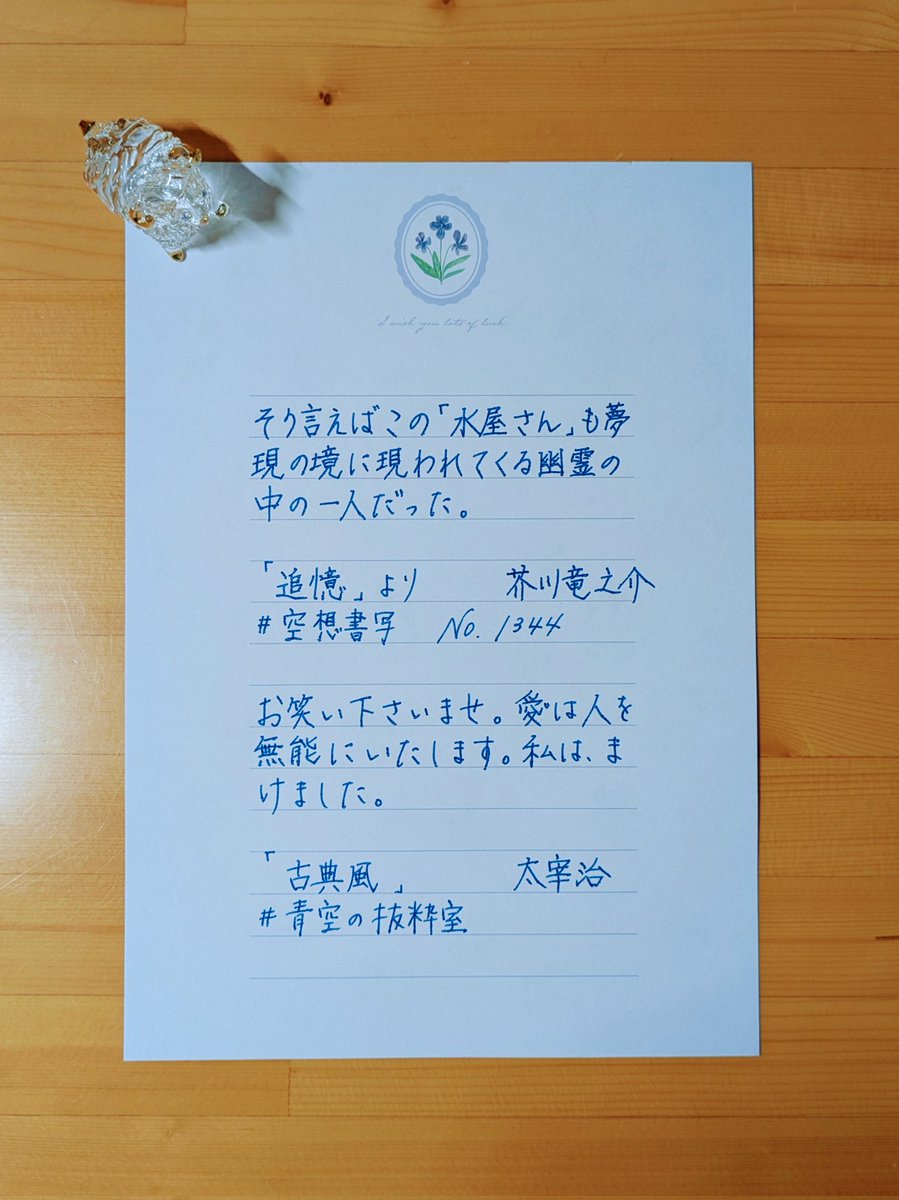 I wish you lots of luck
そう言えばこの「水屋さん」も夢
現の境に現われてくる幽霊の
中の一人だった。
「追憶」より 芥川竜之介
#空想書写 No. 1344
お笑い下さいませ。愛は人を
無能にいたします。私は、ま
けました。
「古典風」 太宰治
#青空の抜粋室